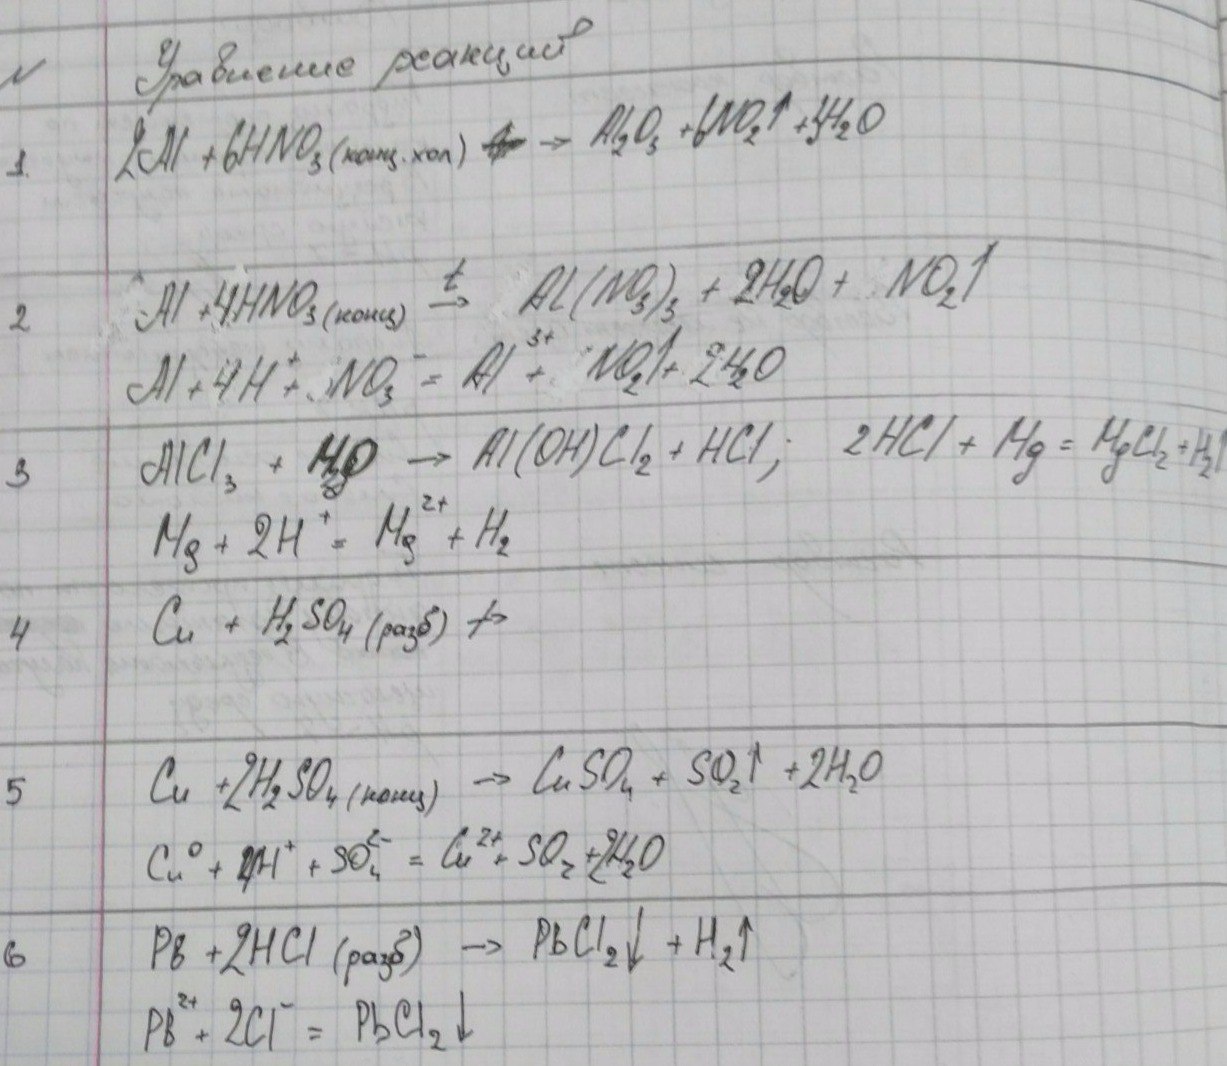 N Уравнение реакций
1. 2Al + 6HNO₃ (конц. хол) → Al₂O₃ + 6NO₂↑ + 3H₂O
2 Al + 4HNO₃ (конц) →ᵗ Al(NO₃)₃ + 2H₂O + NO₂↑
Al + 4H⁺ + NO₃⁻ = Al³⁺ + NO₂↑ + 2H₂O
3 AlCl₃ + H₂O → Al(OH)Cl₂ + HCl; 2HCl + Mg = MgCl₂ + H₂↑
Mg + 2H⁺ = Mg²⁺ + H₂
4 Cu + H₂SO₄ (разб) ↛
5 Cu + 2H₂SO₄ (конц) → CuSO₄ + SO₂↑ + 2H₂O
Cu⁰ + 4H⁺ + SO₄²⁻ = Cu²⁺ + SO₂ + 2H₂O
6 Pb + 2HCl (разб) → PbCl₂↓ + H₂↑
Pb²⁺ + 2Cl⁻ = PbCl₂↓